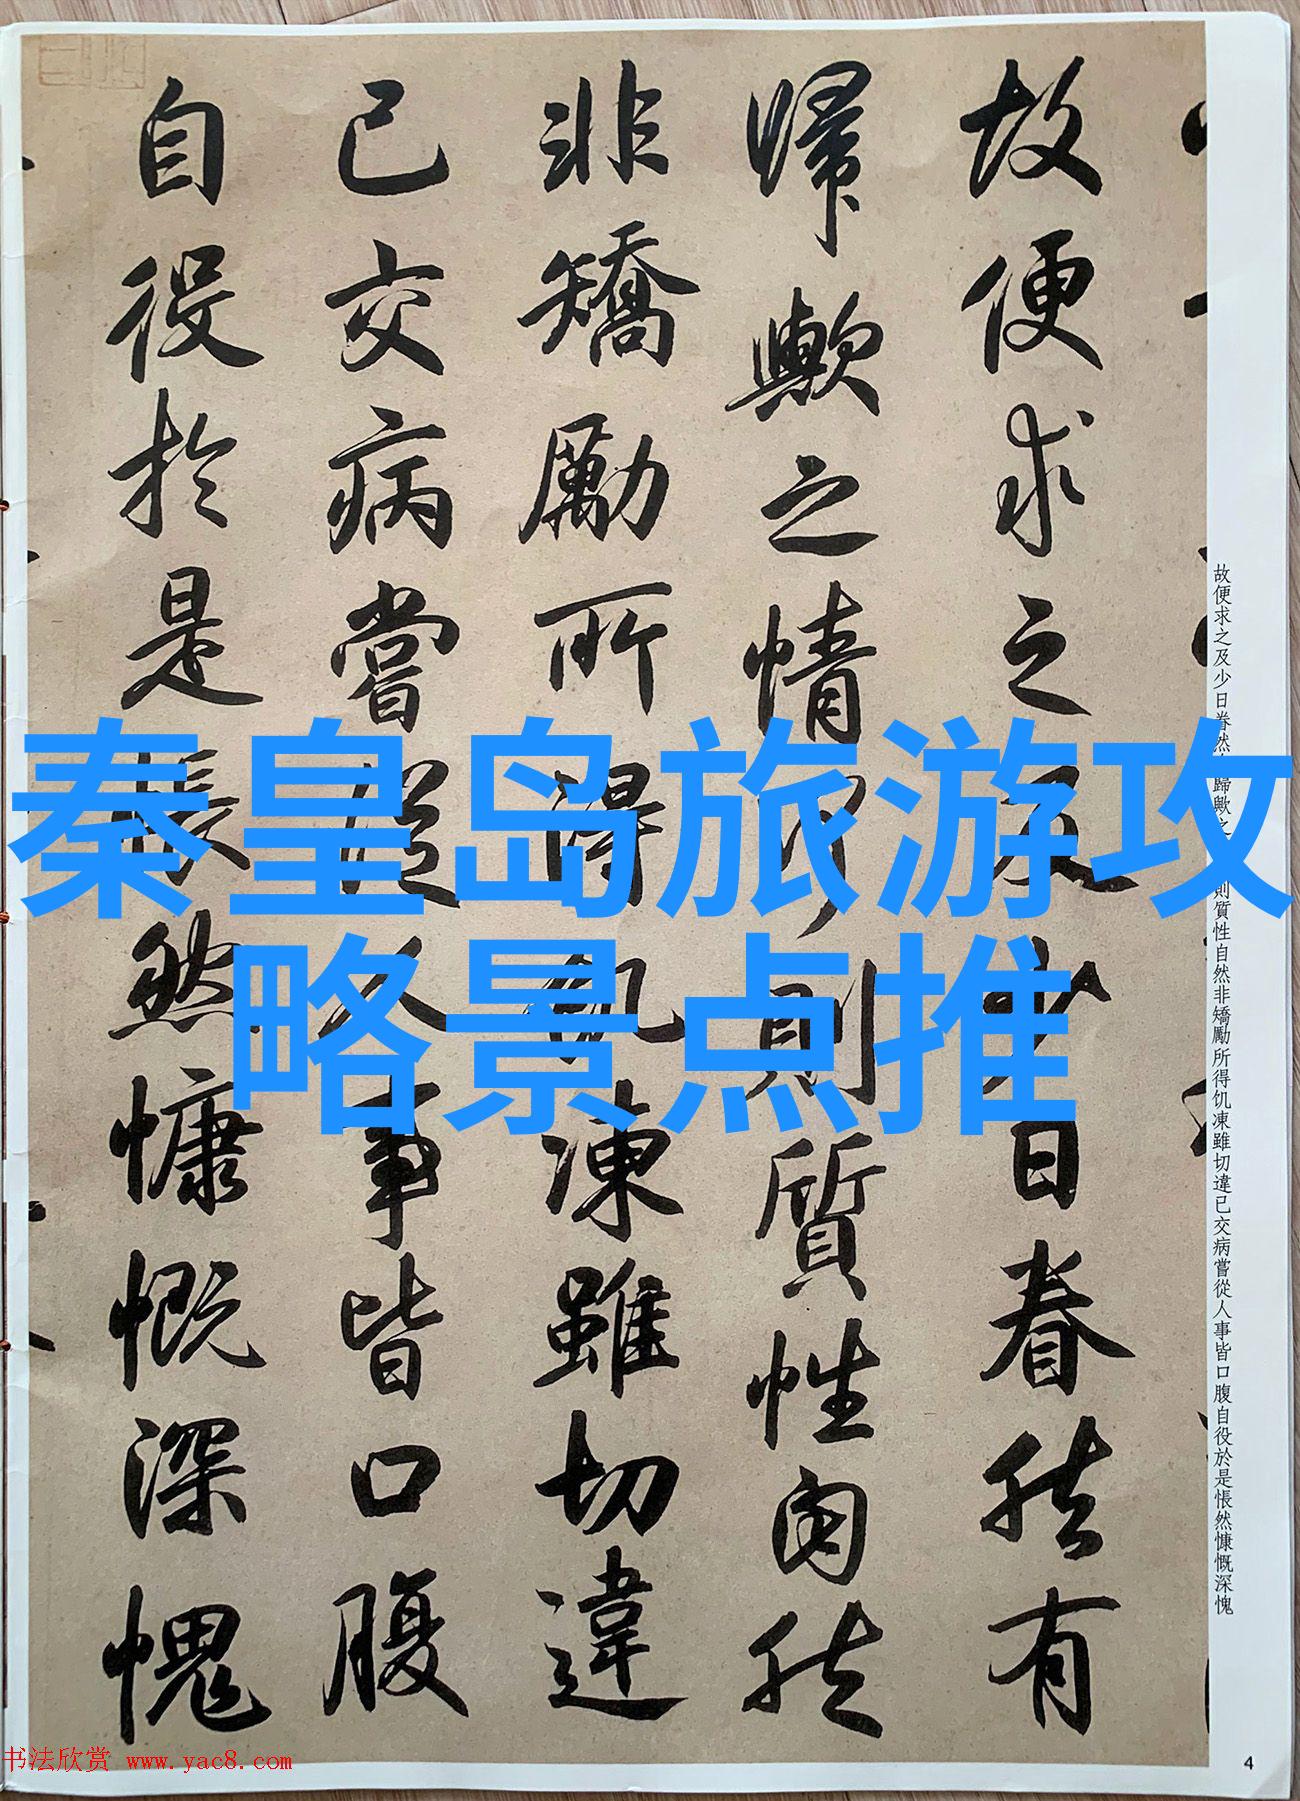 秦皇岛旅游攻
略景点推
故便求之及少日眷然有
歸歟之情何則質性自然
非矯勵所得飢凍雖切違
已交病嘗從人事皆口腹
自役於是悵然慷慨深愧
故便求之及少日眷然歸歟之則質性自然非矯勵所得饥凍雖切違已交病嘗從人事皆口腹自役於是悵然慷慨深愧
4
书法欣赏 www.yac8.com